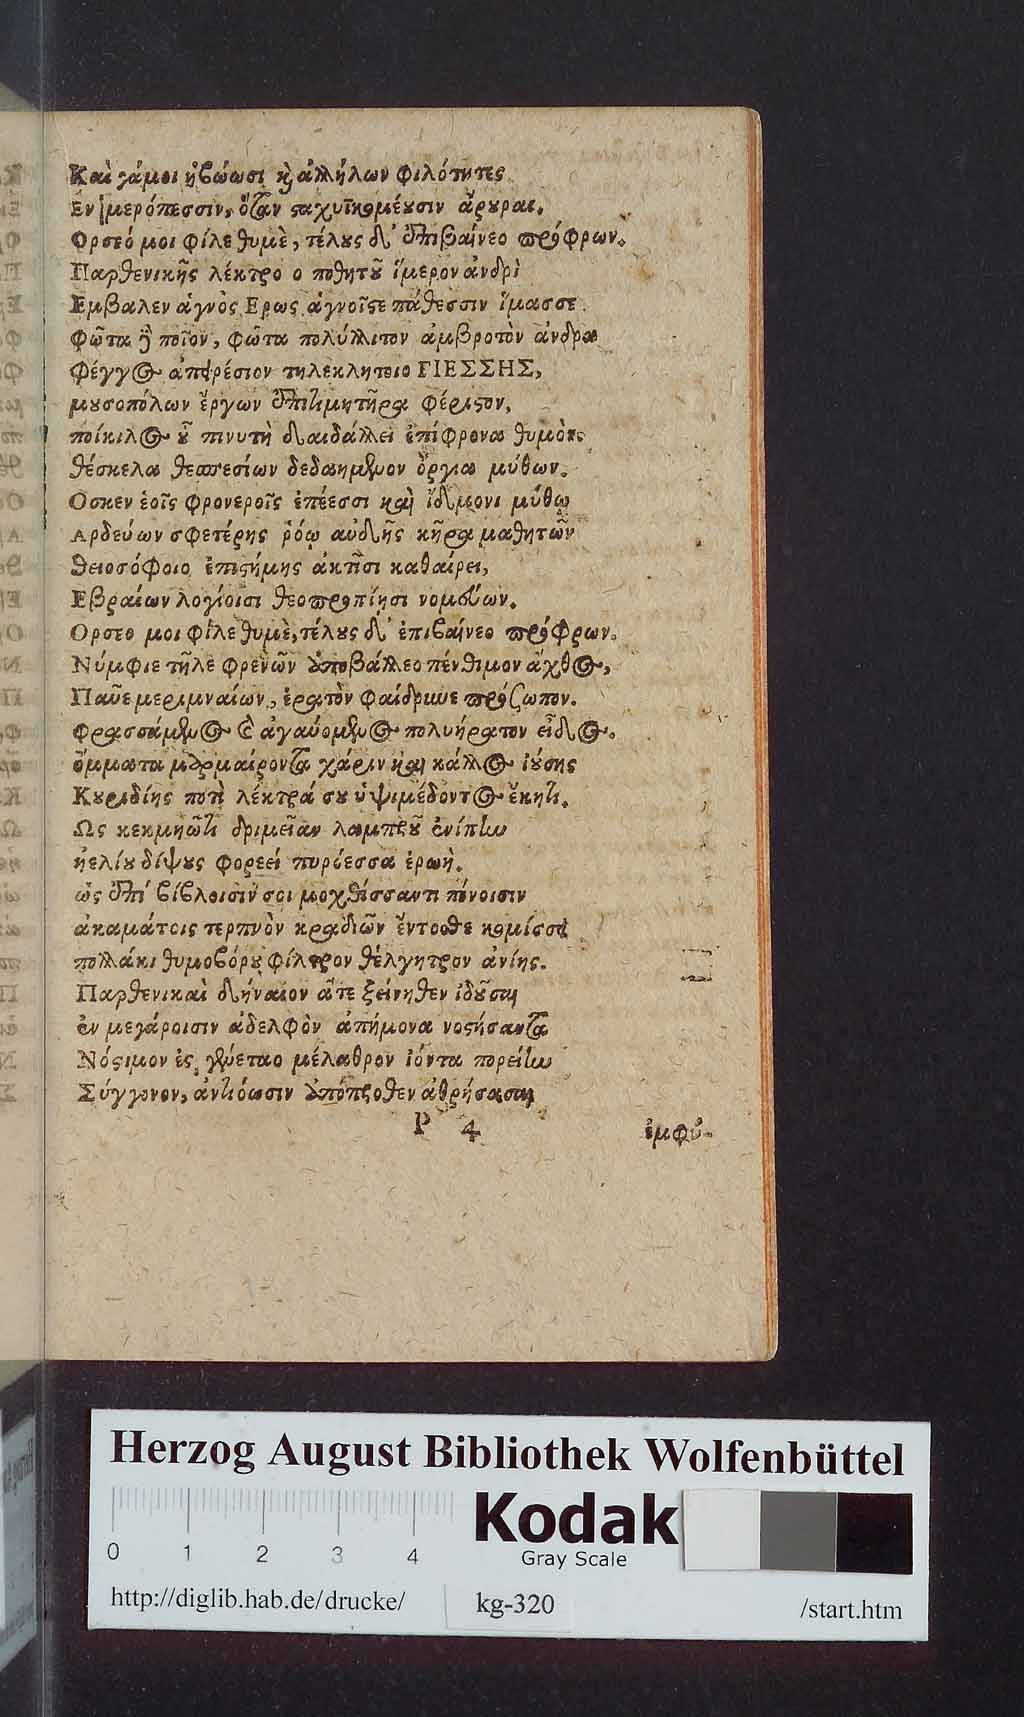 Καὶ γάμοι ἡβώωσι καὶ ἀλλήλων φιλότητες
Εν ἱμερόπεσσιν, ὅταν σαχυϊκομέουσιν ἄρουραι.
Ορσεό μοι φίλε θυμὲ, τέλους δ' ἐπιβαίνεο πρόφρων.
Παρθενικῆς λέκτρο ο ποθητοῦ ἵμερον ἀνδρὶ
Εμβαλεν ἁγνὸς Ερως ἁγνοῖςε πάθεσσιν ἵμασσε.
Φῶτα δὲ ποῖον, φῶτα πολύλλιτον ἀμβροτὸν ἀνδρα
Φέγγος ἀπειρέσιον τηλεκλητοιο ΓΙΕΣΣΗΣ,
μουσοπόλων ἔργων ἐπιτιμητῆρα φέριςον,
ποίκιλος οὗ πινυτὴ δαιδάλλει ἐπίφρονα θυμὸν
θέσκελα θεσπεσίων δεδαημένον ὄργια μύθων.
Οσκεν ἑοῖς φρονεροῖς ἐπέεσσι καὶ ἴδμονι μύθῳ
Αρδεύων σφετέρης ῥόῳ αὐδῆς κῆρα μαθητῶν
θειοσόφοιο ἐπιςήμης ἀκτῖσι καθαίρει,
Εβραίων λογίοισι θεοπροπίησι νομεύων.
Ορσεο μοι φίλε θυμὲ, τέλους δ' ἐπιβαίνεο πρόφρων.
Νύμφιε τῆλε φρενῶν ὑποβάλλεο πένθιμον ἄχθος,
Παῦε μεριμναίων, ἐρατὸν φαίδρυνε πρόσωπον.
Φρασσάμενος ἀγαυόμενος πολυήρατον εἶδος.
ὄμματα μαρμαίροντα χάριν καὶ κάλλος ἰούσης
Κουριδίης ποτὶ λέκτρά σου ὑψιμέδοντος ἕκητι.
Ως κεκμηῶτι δριμεῖαν λαμπροῦ ἐνίπτω
ἠελίου δίψους φορεεί πυρόεσσα ἐρωὴ.
ὣς ἐπί βίβλοισιν σοι μοχθίσσαντι πόνοισιν
ἀκαμάτοις τερπνὸν κραδιῶν ἔντοσθε κομίσσει
πολλάκι θυμοβόρου φίλτρον θέλγητρον ἀνίης.
Παρθενικαὶ δήναιον ἅτε ξείνηθεν ἰδοῦσαι
ἐν μεγάροισιν ἀδελφὸν ἀπήμονα νοςήσαντα
Νόςιμον ἐς μέλαθρον ἰόντα πορείην
Σύγγονον, ἀντιόωσιν ὑπόπροθεν ἀθρήσασαι
P 4 ἐμφύ-
Herzog August Bibliothek Wolfenbüttel
Kodak
Gray Scale
0 1 2 3 4
http://diglib.hab.de/drucke/ kg-320 /start.htm